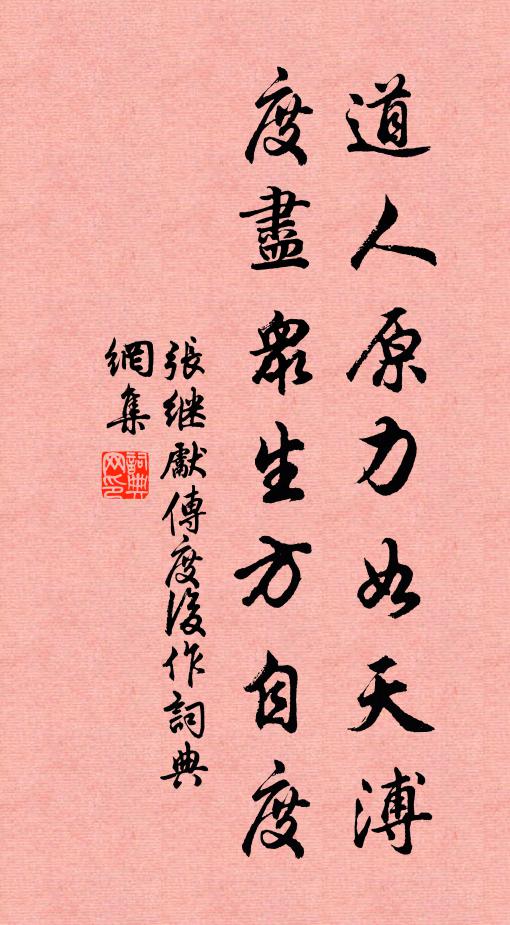 道人原力如天溥
度盡眾生方自度
張继獻傳度後作詞典
網集
詞典
网印